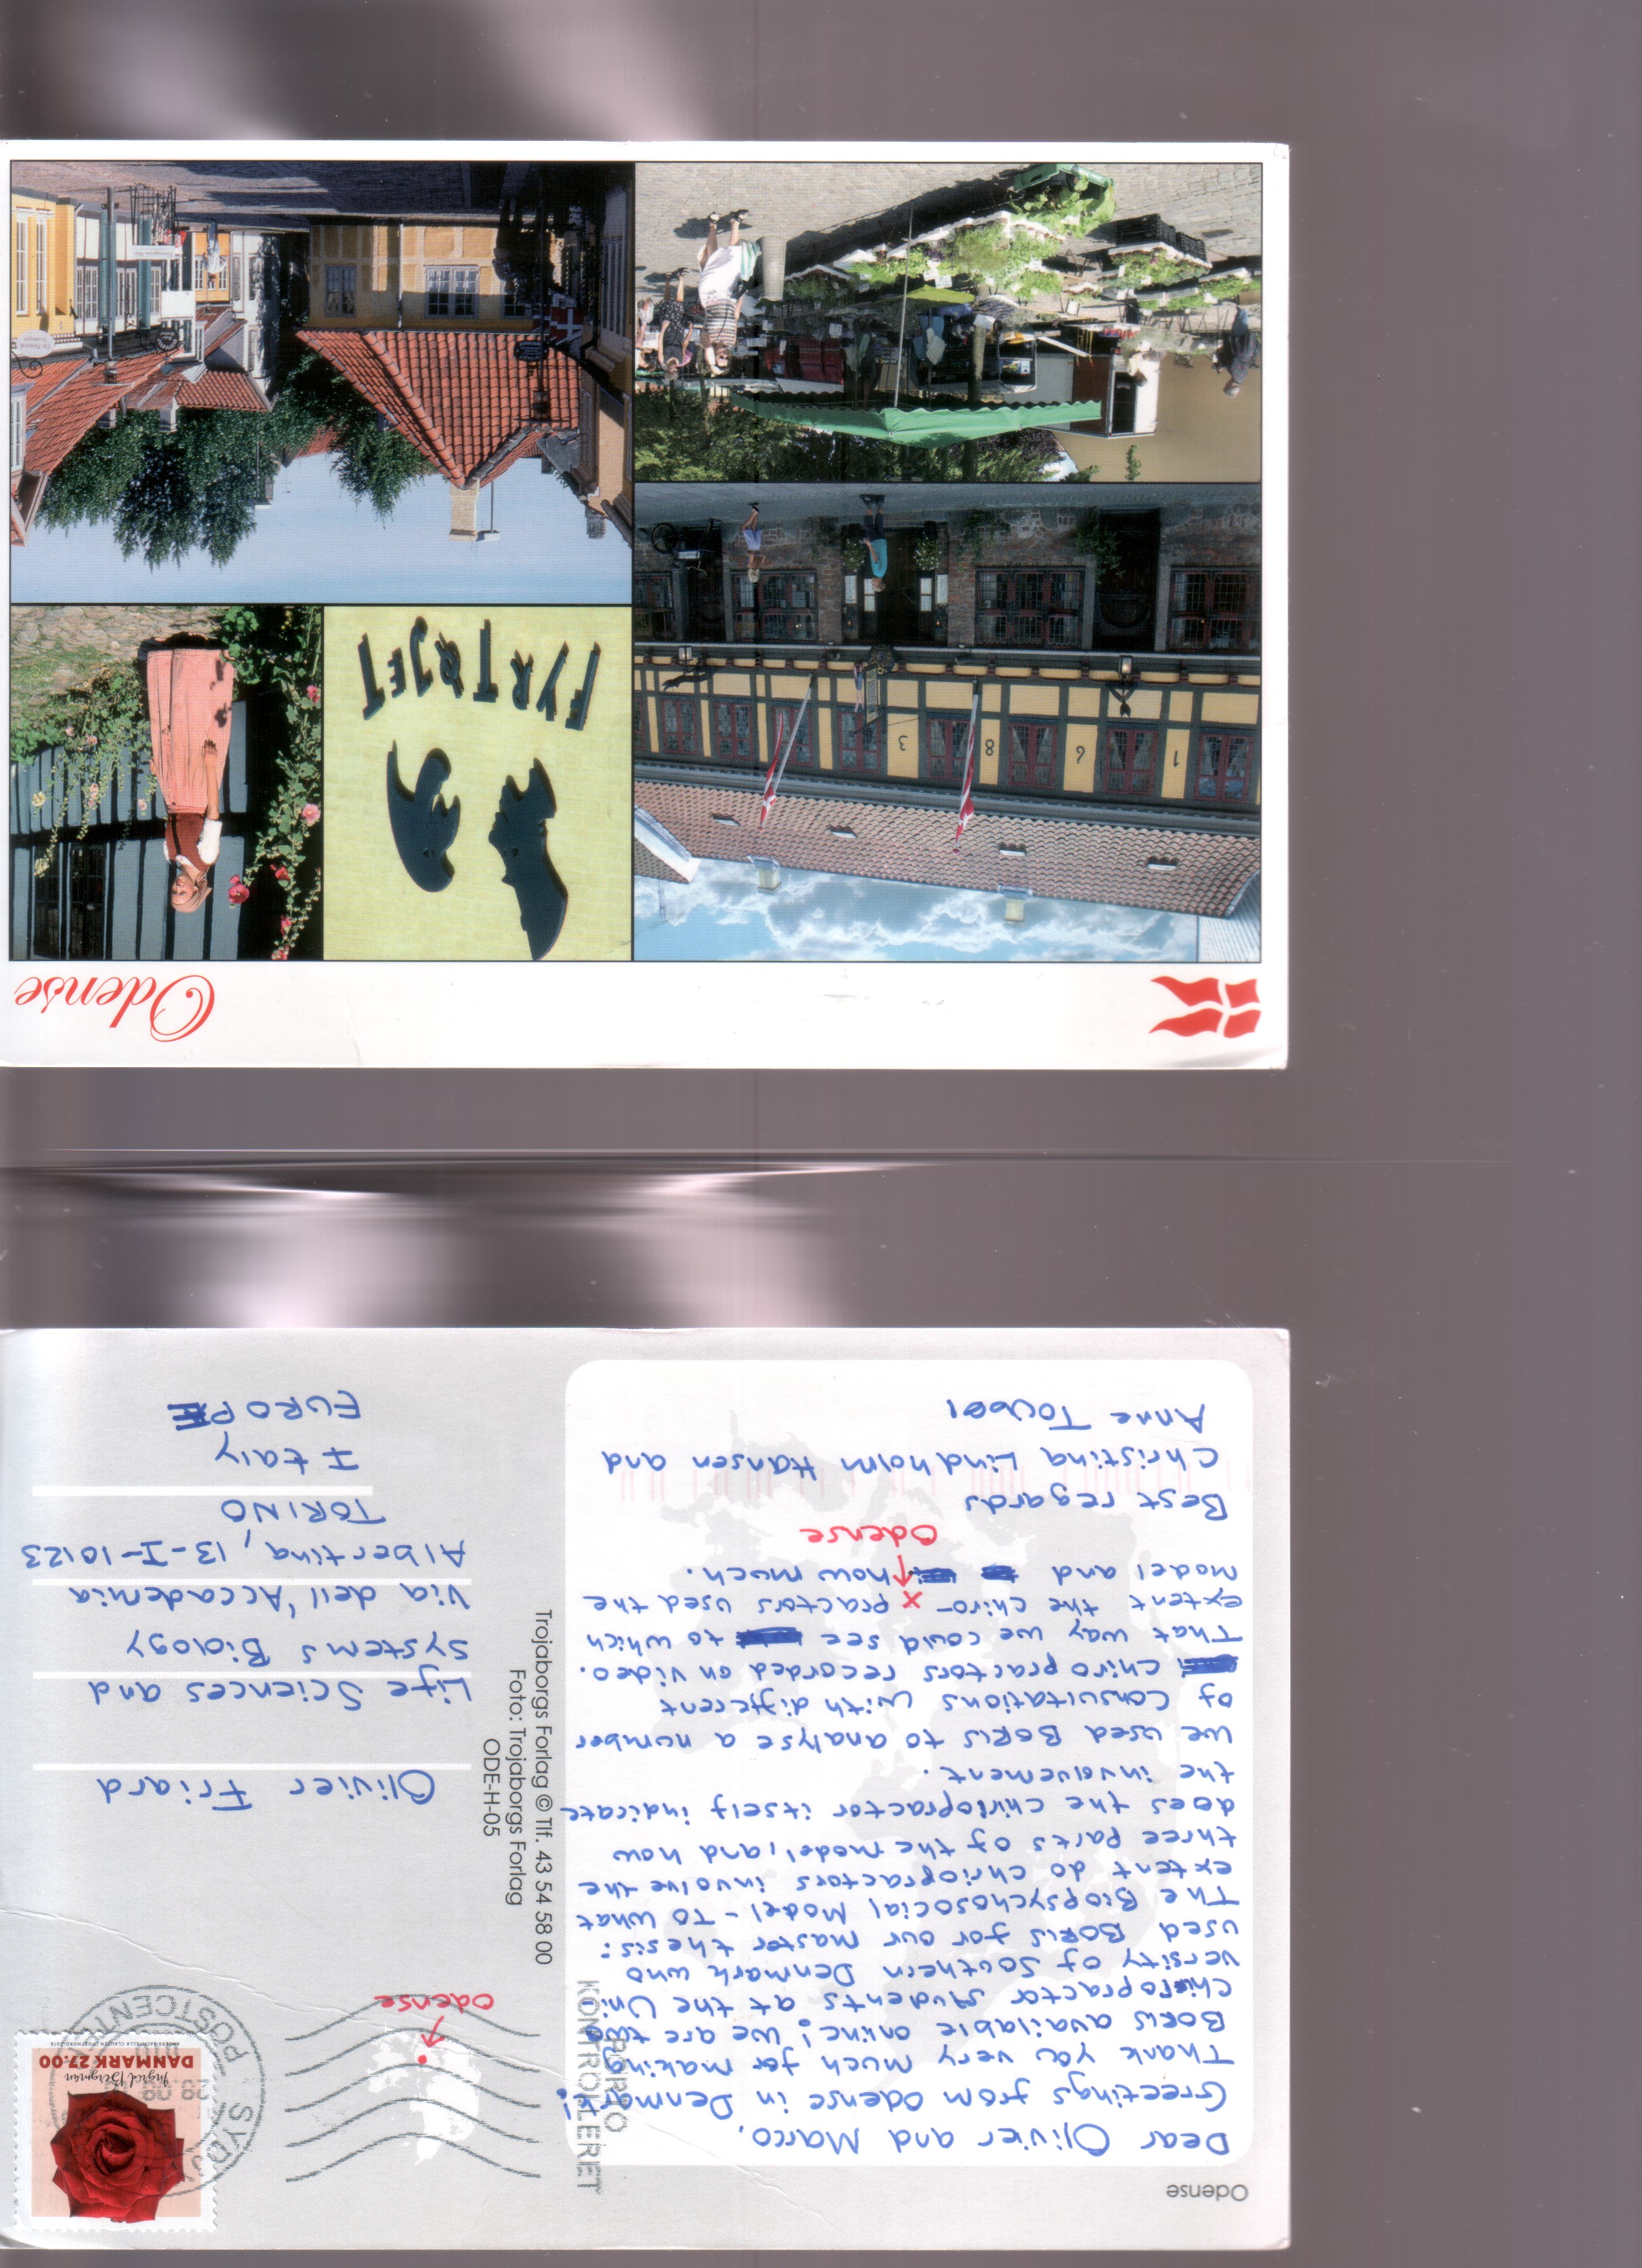 Odense
Dear Olivier and Marco.
Greetings from Odense in Denmark!
Thank you very much for making
BORIS available online! We are two
Chiropractor students at the Uni-
versity of Southern Denmark who
used BORIS for our master thesis:
The Biopsychosocial Model - To what
extent do chriopractors involve the
three parts of the model and how
does the chiropractor itself indicate
the involvement.
We used BORIS to analyse a number
of consultations with different
chiropractors recorded on video.
That way we could see to which
extent the chiro- x practors used the
model and how much.
Odense
Best regards
Christina Lindholm Hansen and
Anne Toubøl
PORTO
KONTROLLERET
Trojaborgs Forlag © Tlf. 43 54 58 00
Foto: Trojaborgs Forlag
ODE-H-05
Odense
Ingrid Bergman
DANMARK 27.00
POSTCENTER
Olivier Friard
Life Sciences and
Systems Biology
Via dell'Accademia
Albertina, 13-I-10123
TORINO
Italy
EUROPE
Odense
1 6 8 3
FYRTØJET